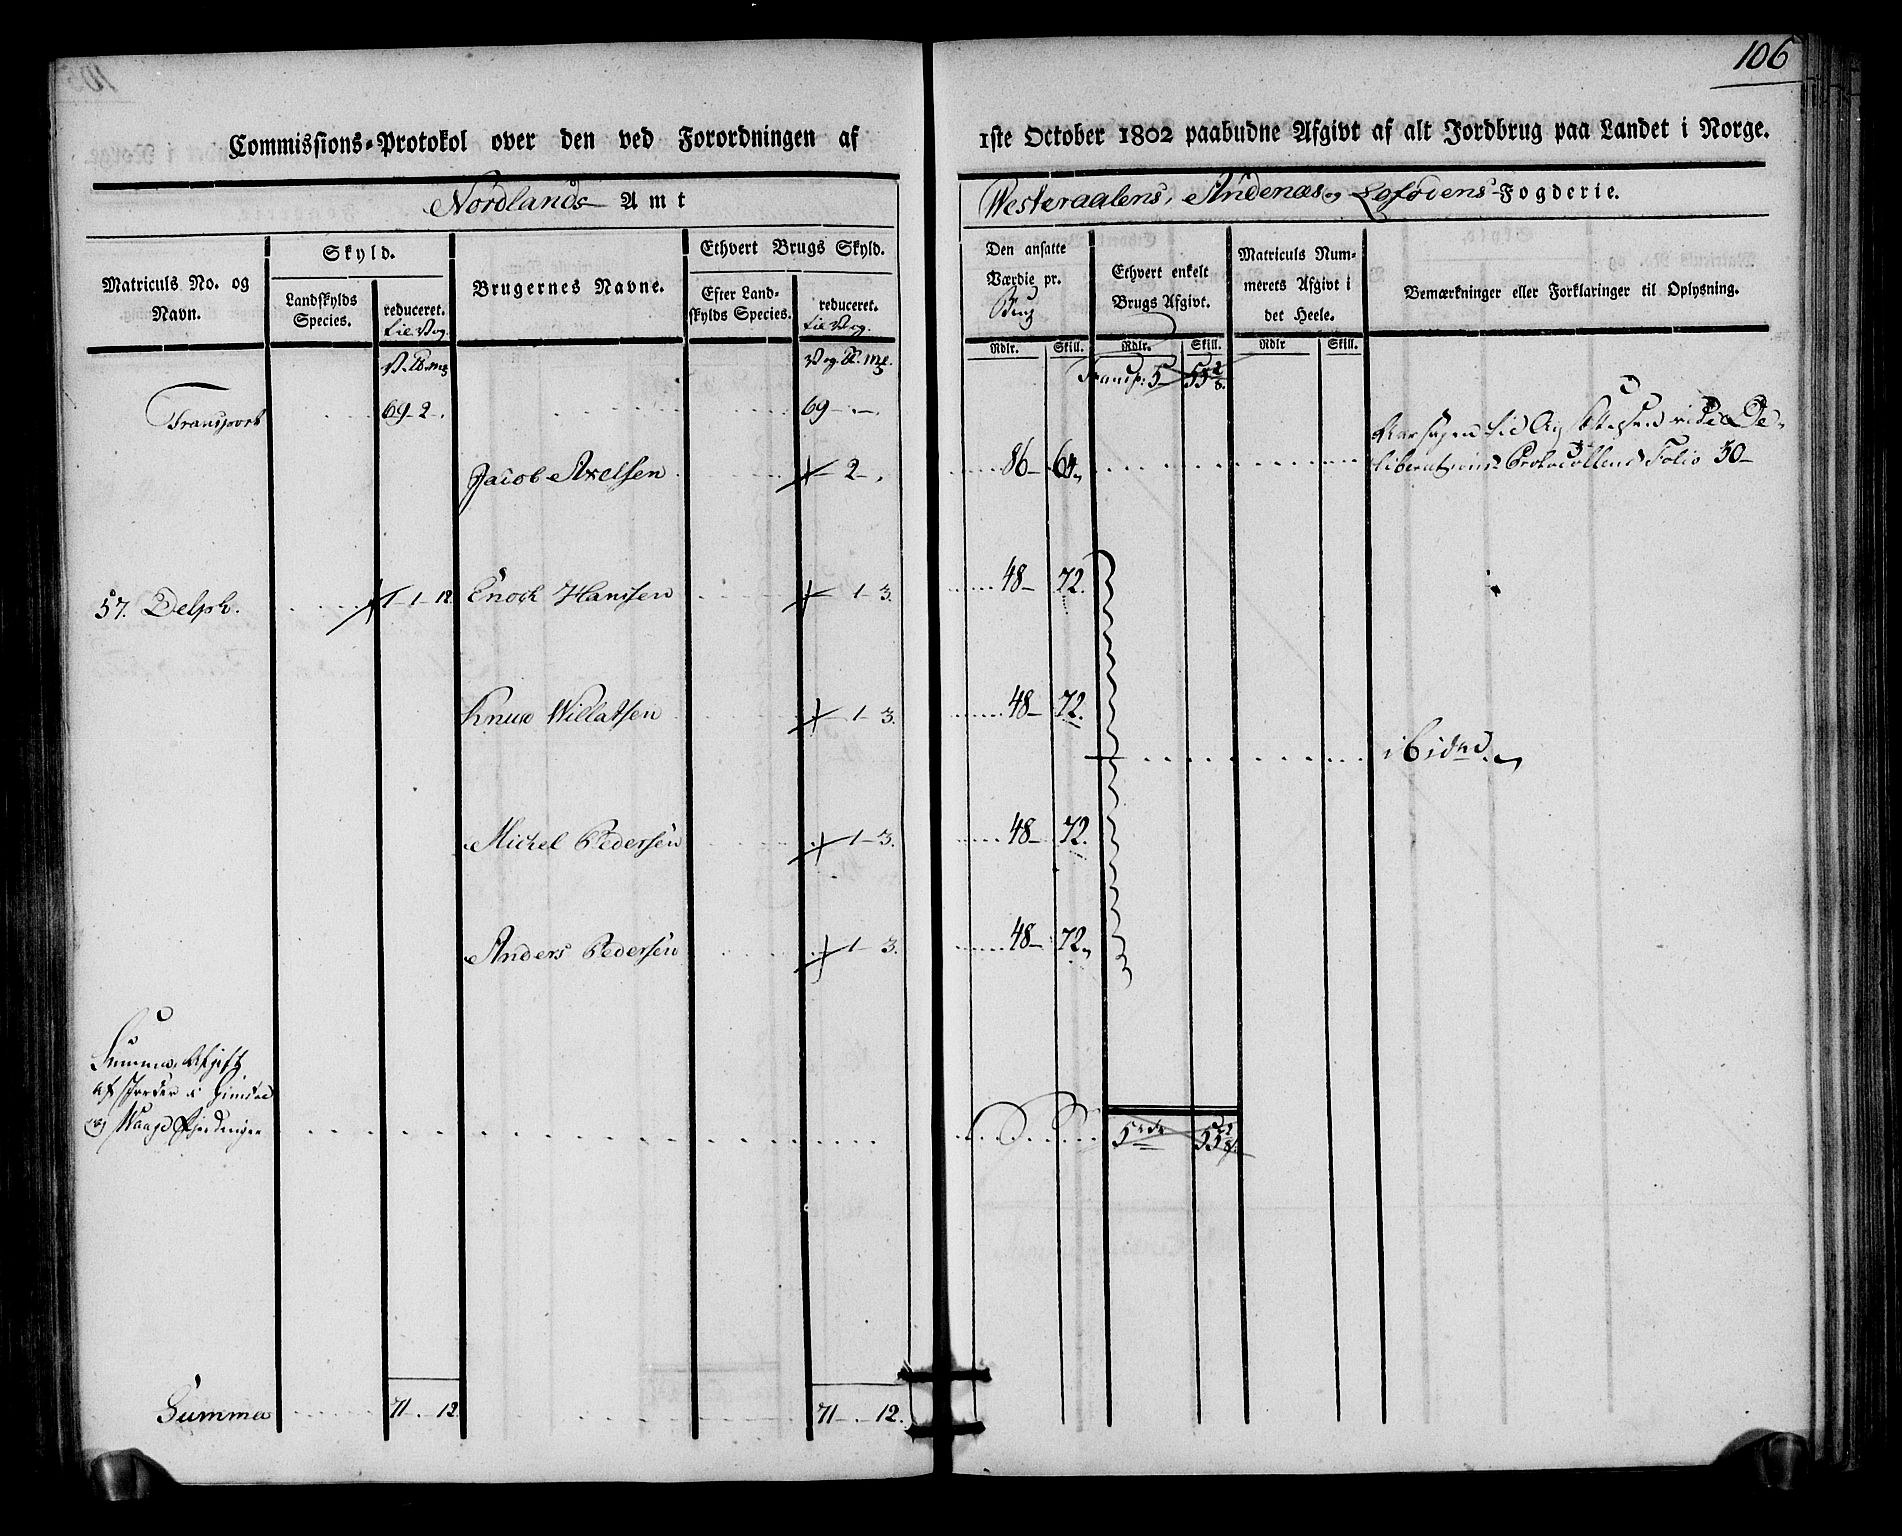 106
Commissions-Protokol over den ved Forordningen af 1ste October 1802 paabudne Afgivt af alt Jordbrug paa Landet i Norge.
Nordlands Amt
Westeraalens, Andenæs og Lofodens Fogderie.
Matriculs No. og Navn.
Skyld.
Landskylds Species.
reduceret. til Vog.
Brugernes Navne.
Ethvert Brugs Skyld.
Efter Landskylds Species.
reduceret. til Vog.
Den ansatte Værdie pr. Brug
Ethvert enkelt Brugs Afgivt.
Matriculs Nummerets Afgivt i det Heele.
Bemærkninger eller Forklaringer til Oplysning.
Rdlr. Skill. Rdlr. Skill. Rdlr Skill.
Transp: 5 55
Transport 69-2. 69
Jacob Axelsen 2 86 64
vide De-
liberations Protocollens Folio 50
57. Delph. 1-1-12 Enoch Hanssen 1 3. 48 72.
Knud Willatsen 1 3. 48 72.
ibidem.
Michel Pedersen 1 3. 48 72.
Anders Pedersen 1 3. 48 72
Summa Afgift
af Jorder i Gimsøe
og Waage Fjerdinger 5 55
Summa 71 . 12 71 . 12.